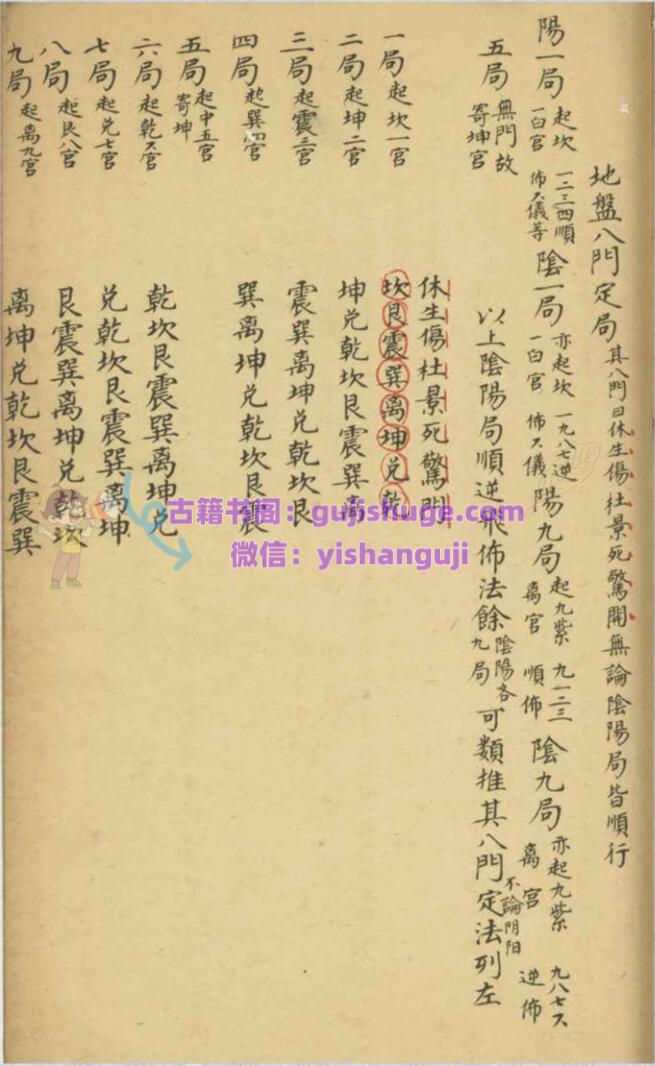 地盤八門定局 其八門曰休生傷杜景死驚開無論陰陽局皆順行
陽一局 起坎一白宮 一二三四順佈六儀等 陰一局 亦起坎一白宮 一九八七逆佈六儀 陽九局 起九紫离宮 九一二三順佈 陰九局 亦起九紫离宮 九八七六逆佈
五局 無門故寄坤宮 以上陰陽局順逆飛佈法餘陰陽各九局可類推其八門不論阴阳定法列左
休生傷杜景死驚開
一局起坎一宮 坎艮震巽离坤兌乾
二局起坤二宮 坤兌乾坎艮震巽离
三局起震三宮 震巽离坤兌乾坎艮
四局起巽四宮 巽离坤兌乾坎艮震
五局起中五宮寄坤
六局起乾六宮 乾坎艮震巽离坤兌
七局起兌七宮 兌乾坎艮震巽离坤
八局起艮八宮 艮震巽离坤兌乾坎
九局起离九宮 离坤兌乾坎艮震巽
古籍书图：gujishuge.com
微信：yishanguji